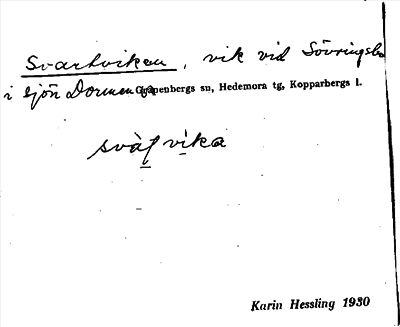 Svartviken, vik vid Sövringsbo
i sjön Dormen
Garpenbergs sn, Hedemora tg, Kopparbergs l.
svàʈvìka
Karin Hessling 1930